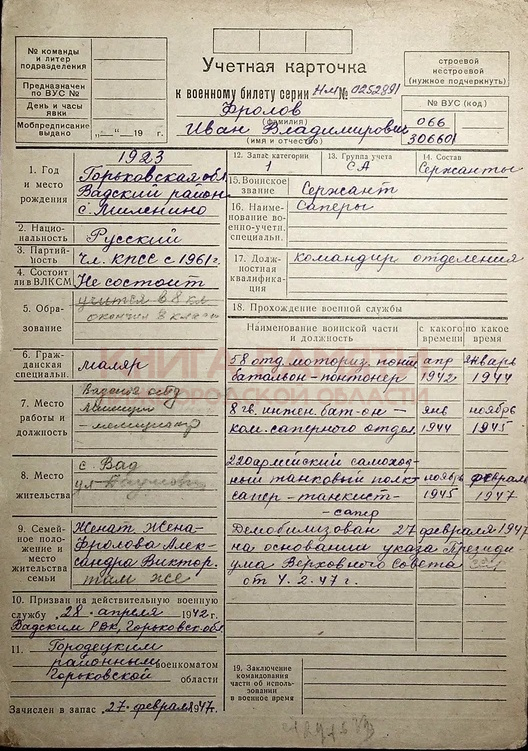 № команды
и литер
подразделения
Предназначен
по ВУС №
День и часы
явки
Мобпредписание
выдано „—“ 19 г.
Учетная карточка
к военному билету серии НМ № 0252891
Фролов
(фамилия)
Иван Владимирович
(имя и отчество)
строевой
нестроевой
(нужное подчеркнуть)
№ ВУС (код)
066
306601
1. Год
и место
рождения
1923
Горьковская обл
Вадский район
с. Миленино
2. Национальность
Русский
3. Партийность
Чл. КПСС с 1961 г.
4. Состоит
ли в ВЛКСМ
Не состоит
5. Образование
учится в 8 кл
окончил 8 классов
6. Гражданская
специальн.
маляр
7. Место
работы и
должность
8. Место
жительства
с. Вад
ул
9. Семейное положение и
место
жительства
семьи
Женат. Жена-
Фролова Алек-
сандра Виктор.
там же
10. Призван на действительную военную
службу 28 апреля 1942 г.
Вадским РВК, Горьковск. обл.
11. Городецким
районным военкоматом
Горьковской области
Зачислен в запас 27 февраля 1947 г.
12. Запас категории
1
13. Группа учета
СА
14. Состав
Сержанты
15. Воинское
звание
Сержант
16. Наименование военно-учетн.
специальн.
Саперы
17. Должностная
квалификация
командир отделения
18. Прохождение военной службы
Наименование воинской части
и должность
с какого
времени
по какое
время
58 отд. моториз. понт апр январь
батальон - понтонер 1942 1944
8 гв. инжен. бат-он — янв ноябрь
ком. саперного отдел. 1944 1945
220 армейский самоход-
ный танковый полк ноябрь февраль
сапер - танкист - 1945 1947
- сапер
Демобилизован 27 февраля 1947
на основании указа Президи
ума Верховного Совета
от 4. 2. 47 г.
19. Заключение
командования
части об использовании
в военное время
КНИГА ПАМЯТИ
НИЖЕГОРОДСКОЙ ОБЛАСТИ